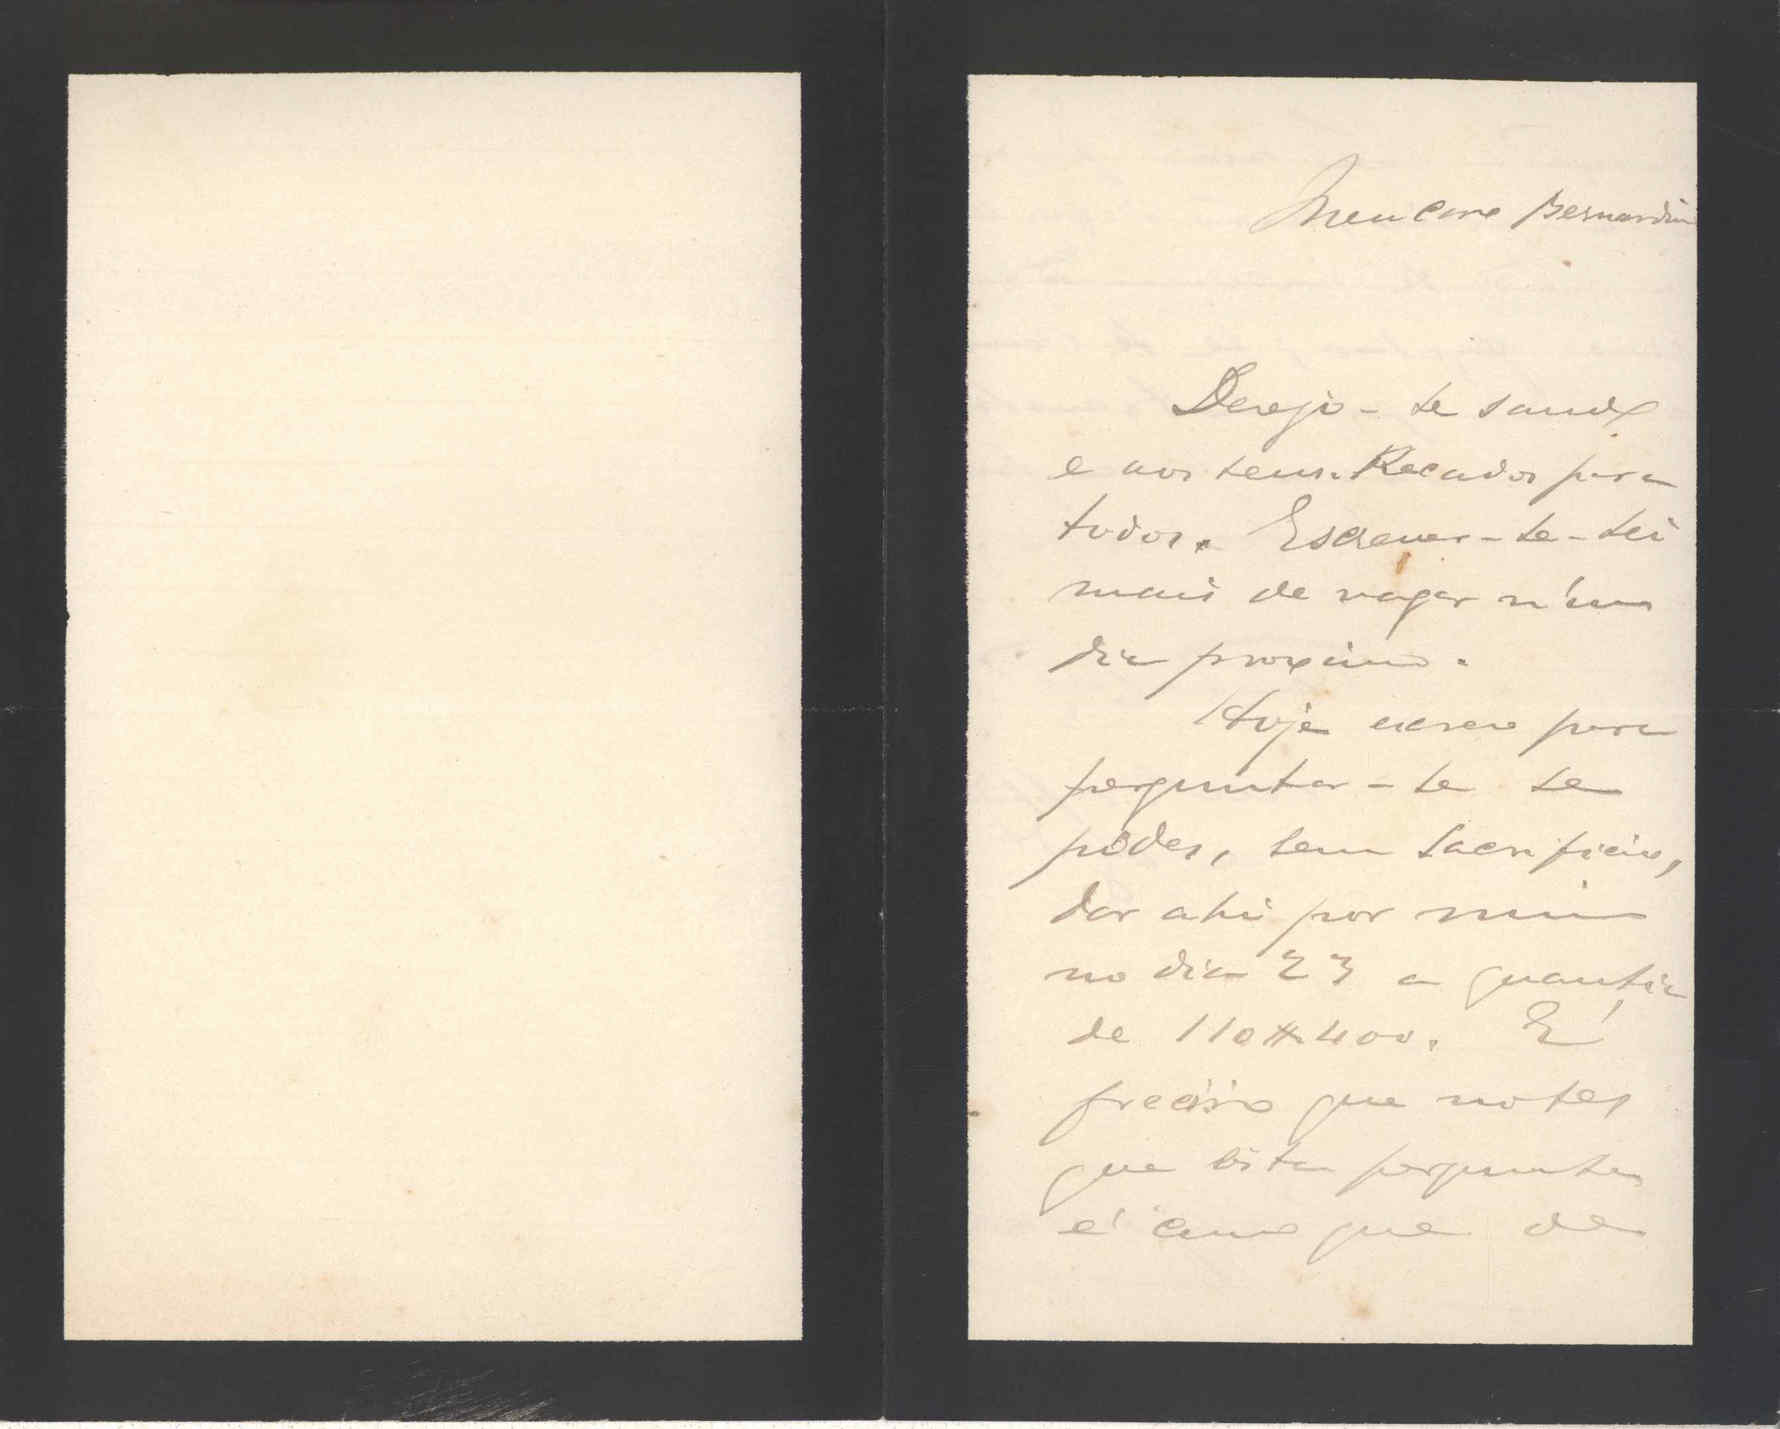 Meu caro Bernardino
Desejo-te saude
e aos teus. Recados para
todos. Escrever-te-hei
mais de vagar n'um
dia proximo.
Hoje escrevo para
perguntar-te se
pódes, sem sacrificio,
dar ahi por mim
no dia 23 a quantia
de 110$400. É
preciso que notes
que esta pergunta
é como que de